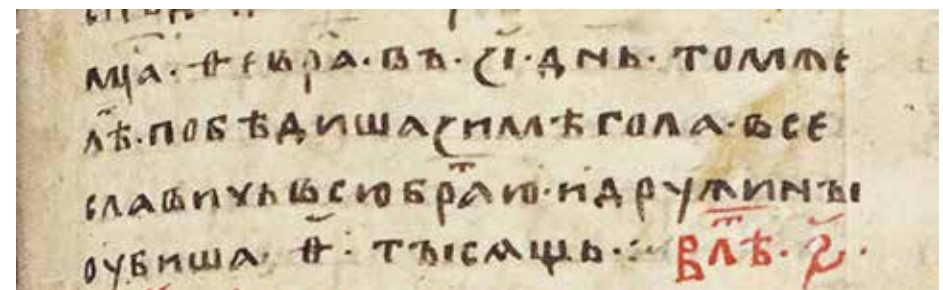 мц҃а · ѳевр҃а · въ · з҃і · днь · томже
лⷮѣ · побѣдишазимѣгола · все
славичьвсюбраⷮю · идружинꙑ
оубиша · ѳ҃ · тꙑсѧщь ·:· влⷮѣ · ѕ҃ ·